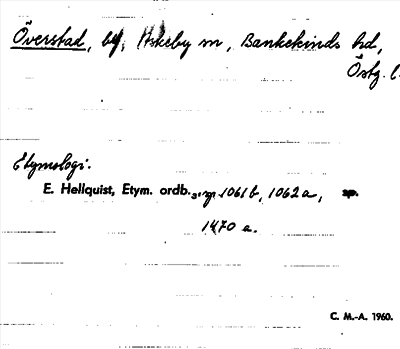 Överstad, by, Askeby sn, Bankekinds hd,
Östg. l.
Etymologi.
E. Hellquist, Etym. ordb.3, s. 1061 b, 1062 a,
1470 a.
C. M.-A. 1960.